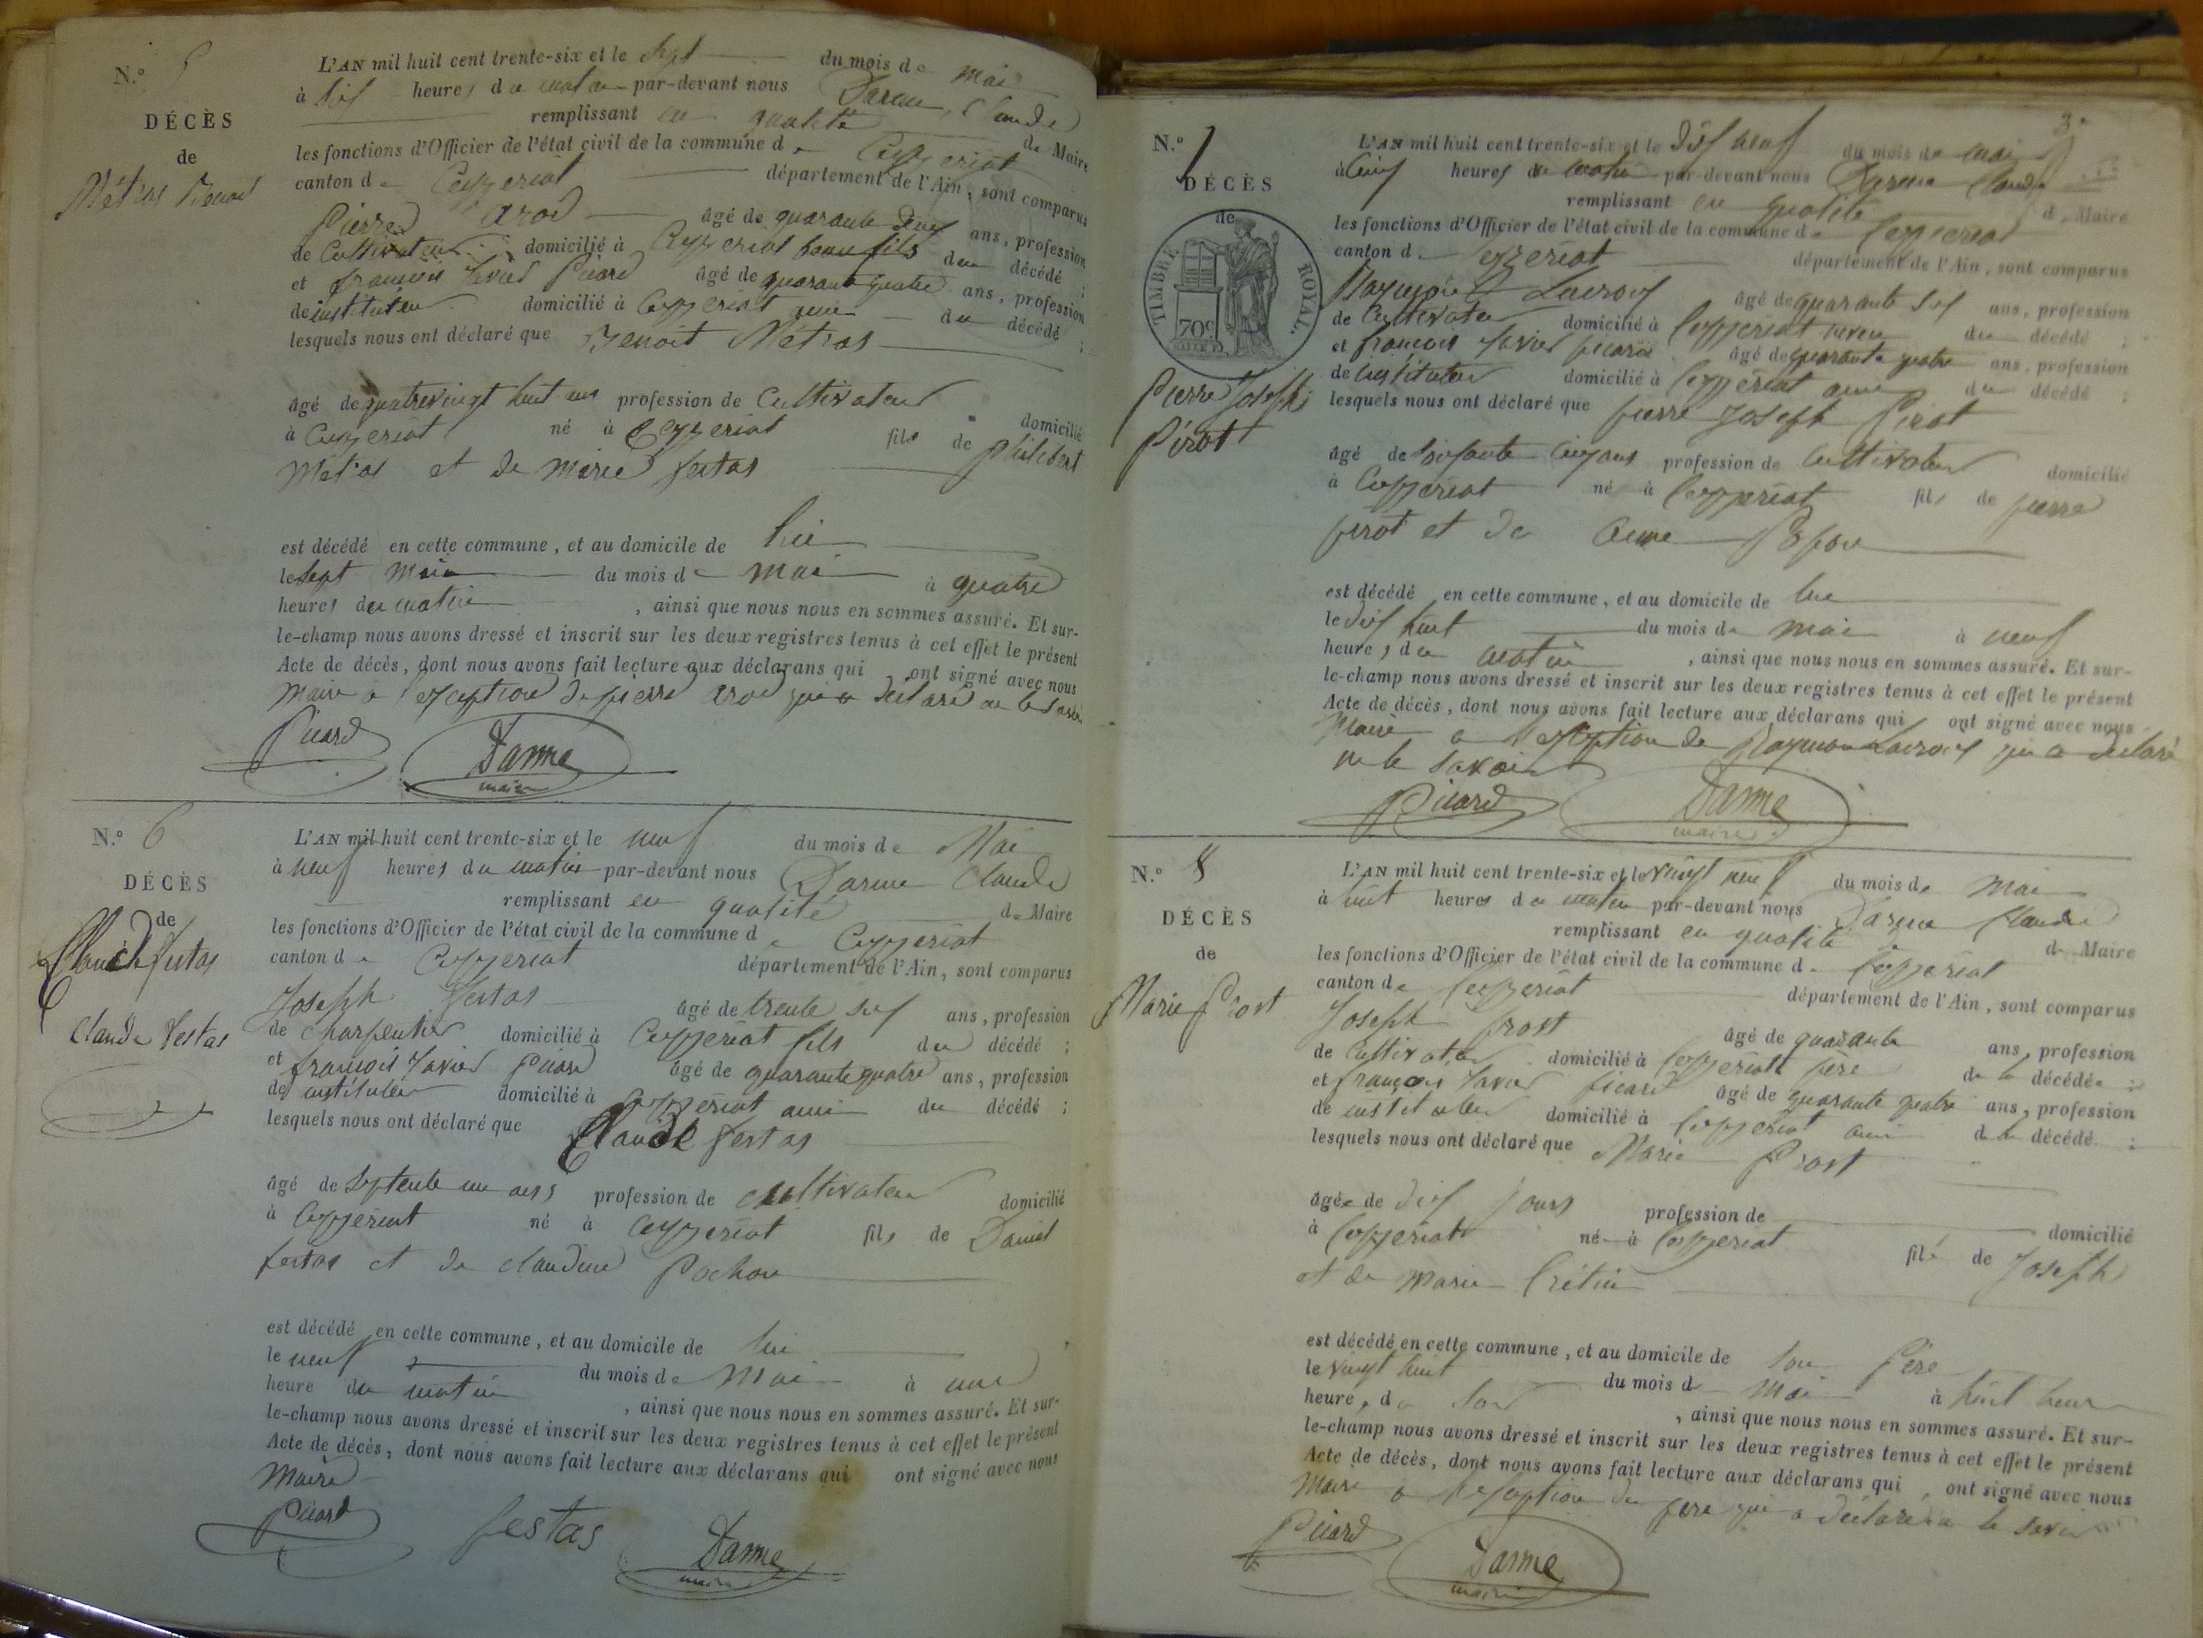 N.º 5
DÉCÈS
de
Métras Benoit
L'AN mil huit cent trente-six et le sept du mois de mai
à dix heures du matin par-devant nous Darme, Claude
remplissant en qualité de Maire
les fonctions d'Officier de l'état civil de la commune de Ceyzeriat
canton de Ceyzeriat département de l'Ain, sont comparus
Pierre âgé de quarante deux ans, profession
de Cultivateur domicilié à Ceyzeriat beau fils du décédé ;
et françois Xavier Picard âgé de quarante quatre ans, profession
de instituteur domicilié à Ceyzeriat ami du décédé ;
lesquels nous ont déclaré que Benoit Métras
âgé de quatrevingt huit ans profession de Cultivateur domicilié
à Ceyzeriat né à Ceyzeriat fils de Philibert
Métras et de marie festas
est décédé en cette commune, et au domicile de lui
le sept mai du mois de mai à quatre
heures du matin, ainsi que nous nous en sommes assuré. Et sur-
le-champ nous avons dressé et inscrit sur les deux registres tenus à cet effet le présent
Acte de décès, dont nous avons fait lecture aux déclarans qui ont signé avec nous
Maire a l'exception de pierre qui a déclaré ne le savoir
Picard Darme
maire
N.º 6
DÉCÈS
de
Claude festas
Claude festas
L'AN mil huit cent trente-six et le neuf du mois de Mai
à neuf heures du matin par-devant nous Darme Claude
remplissant en qualité de Maire
les fonctions d'Officier de l'état civil de la commune de Ceyzeriat
canton de Ceyzeriat département de l'Ain, sont comparus
Joseph festas âgé de trente six ans, profession
de charpentier domicilié à Ceyzeriat fils du décédé ;
et françois Xavier Picard âgé de quarante quatre ans, profession
de instituteur domicilié à Ceyzeriat ami du décédé ;
lesquels nous ont déclaré que Claude festas
âgé de septente un ans profession de cultivateur domicilié
à Ceyzeriat né à Ceyzeriat fils de Daniel
festas et de claudine Pochon
est décédé en cette commune, et au domicile de lui
le neuf du mois de Mai à une
heure du matin, ainsi que nous nous en sommes assuré. Et sur-
le-champ nous avons dressé et inscrit sur les deux registres tenus à cet effet le présent
Acte de décès, dont nous avons fait lecture aux déclarans qui ont signé avec nous
Maire
Picard festas Darme
maire
3
N.º 7
DÉCÈS
de
TIMBRE ROYAL
70c
Pierre Joseph
Pirot
L'AN mil huit cent trente-six et le dix neuf du mois de mai
à cinq heures du matin par-devant nous Darme Claude
remplissant en qualité de Maire
les fonctions d'Officier de l'état civil de la commune de Ceyzeriat
canton de Ceyzeriat département de l'Ain, sont comparus
Lacroix âgé de quarante six ans, profession
de Cultivateur domicilié à Ceyzeriat neveu du décédé ;
et françois Xavier picard âgé de quarante quatre ans, profession
de instituteur domicilié à Ceyzeriat ami du décédé ;
lesquels nous ont déclaré que pierre Joseph Pirot
âgé de soixante cinq ans profession de cultivateur domicilié
à Ceyzeriat né à Ceyzeriat fils de pierre
pirot et de
est décédé en cette commune, et au domicile de lui
le dix huit du mois de mai à neuf
heures du matin, ainsi que nous nous en sommes assuré. Et sur-
le-champ nous avons dressé et inscrit sur les deux registres tenus à cet effet le présent
Acte de décès, dont nous avons fait lecture aux déclarans qui ont signé avec nous
Maire a l'exception de Lacroix qui a déclaré
ne le savoir
Picard Darme
maire
N.º 8
DÉCÈS
de
Marie Prost
L'AN mil huit cent trente-six et le vingt neuf du mois de mai
à huit heures du matin par-devant nous Darme Claude
remplissant en qualité de Maire
les fonctions d'Officier de l'état civil de la commune de Ceyzeriat
canton de Ceyzeriat département de l'Ain, sont comparus
Joseph prost âgé de quarante ans, profession
de Cultivateur domicilié à Ceyzeriat père de la décédée ;
et françois Xavier picard âgé de quarante quatre ans, profession
de instituteur domicilié à Ceyzeriat ami de la décédé ;
lesquels nous ont déclaré que Marie Prost
âgée de dix jours profession de domicilié
à Ceyzeriat né à Ceyzeriat fille de Joseph
et de marie Crétin
est décédé en cette commune, et au domicile de son Père
le vingt huit du mois de Mai à huit heures
heure, du soir, ainsi que nous nous en sommes assuré. Et sur-
le-champ nous avons dressé et inscrit sur les deux registres tenus à cet effet le présent
Acte de décès, dont nous avons fait lecture aux déclarans qui, ont signé avec nous
Maire a l'exception du père qui a déclaré ne le savoir
Picard Darme
maire